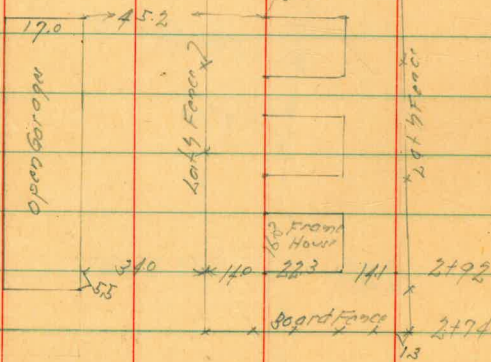 45.2
17.0
Open Garage
Lath Fence
Lath Fence
Frame
House
34.0 14.0 22.3 14.1 2+92
5.5
Board Fence 2+74
1.3